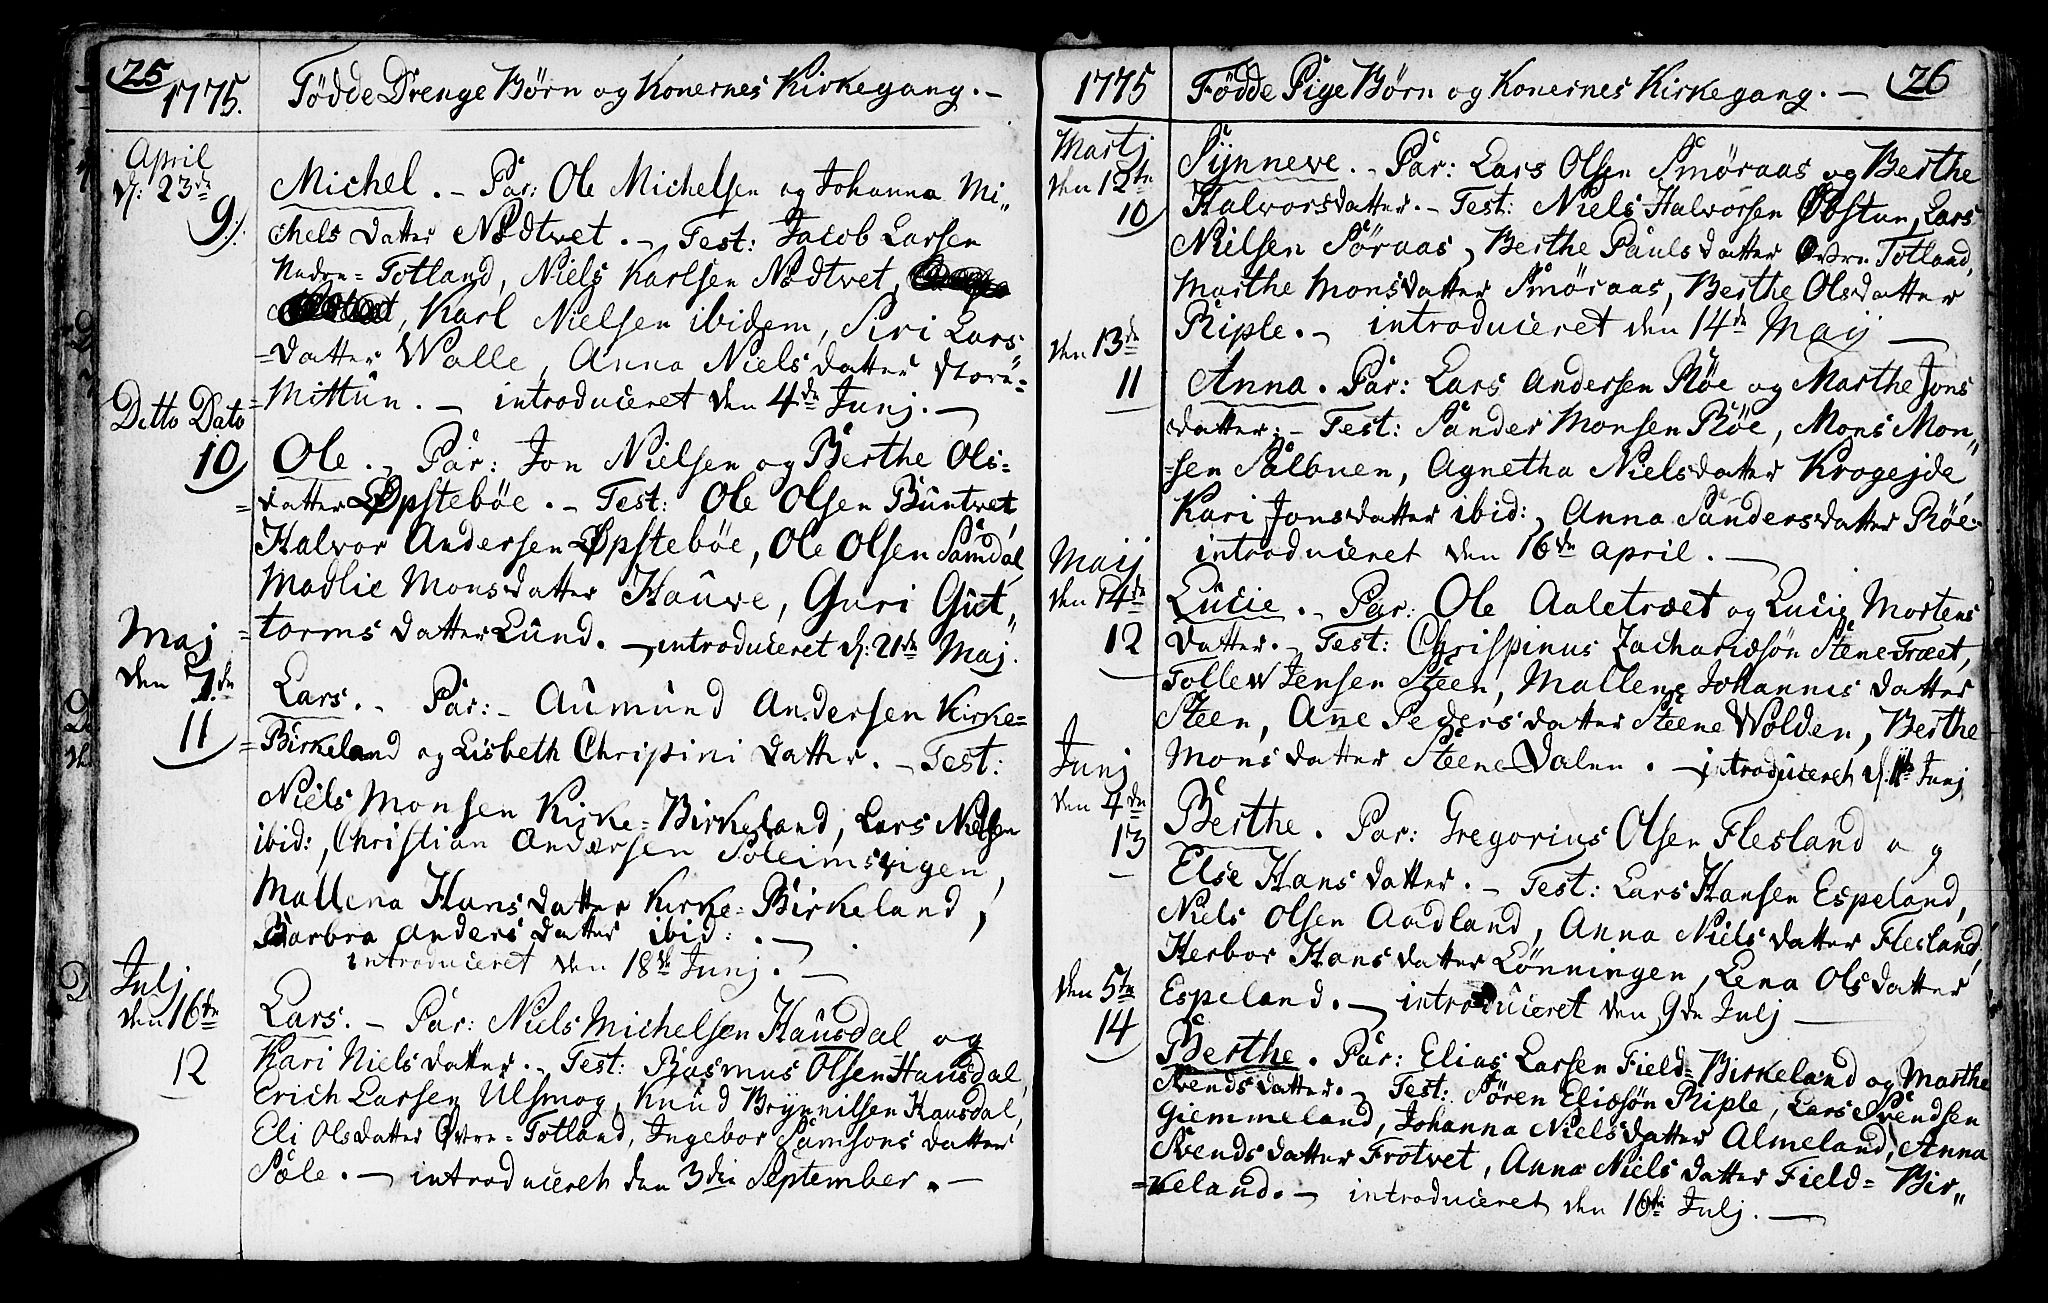 25
1775.
Födde Drenge Börn og Konernes Kirkegang. -
April
d: 23de
9
Michel. - Par: Ole Michelsen og Johanna Mi„
chels datter Nödtvet. - Test: Jacob Larsen
Nedre = Totland, Niels Karlsen Nödtvet,
Karl Nielsen ibidem, Siri Lars
=datter Walle, Anna Nielsdatter Store=
Mittun. - introduceret den 4de Junj. -
Ditto Dato
10
Ole. - Par: Jon Nielsen og Berthe Ols=
=datter Øpsteböe. - Test: Ole Olsen Buntvet,
Halvor Andersen Øpsteböe, Ole Olsen Samdal,
Madlie Monsdatter Hauve, Guri Gut„
=torms datter Lund. - introduceret d: 21de Maj.
Maj
den 7de
11
Lars. - Par: - Aumund Andersen Kirke=
=Birkeland og Lisbeth Chrispini datter. - Test:
Niels Monsen Kirke=Birkeland, Lars Nielsen
ibid:, Christian Andersen Soleimsvigen,
Mallena Hansdatter Kirke=Birkeland,
Barbra Andersdatter ibid: . -
introduceret den 18de Junj. -
Julj
den 16de
12
Lars. - Par: Niels Michelsen Hausdal og
Kari Nielsdatter. - Test: Rasmus Olsen Hausdal,
Erich Larsen Ulsmog, Knud Brynnilsen Hausdal,
Eli Olsdatter Övre=Totland, Ingebor Samsons datter
Sæle. - introduceret den 3die September. -
1775
Födde Pige Börn og Konernes Kirkegang. -
26
Martj
den 12te
10
Synneve. - Par: Lars Olsen Smöraas og Berthe
Halvorsdatter. - Test: Niels Halvorsen Öbstun, Lars
Nielsen Söraas, Berthe Paulsdatter Övre Totland,
Marthe Monsdatter Smöraas, Berthe Olsdatter
Riple. - introduceret den 14de Maij -
den 13de
11
Anna. Par: Lars Andersen Röe og Marthe Jons
datter. - Test: Sander Monsen Röe, Mons Mon„
=sen Salbuen, Agnetha Nielsdatter Krogejde
Kari Jonsdatter ibid:, Anna Sandersdatter Röe -
introduceret den 16de April. -
Maij
den 14de
12
Lucie. - Par: Ole Aaletræet og Lucie Mortens
datter. - Test: Chrispinus Zachariæsön SteneTræet,
Tollew Jensen Steen, Mallene Johannis datter
Steen, Ane Peders datter Steene Wolden, Berthe
Mons datter Steene Dalen. - introduceret d. 11te Junj
Junj
den 4de
13
Berthe. Par: Gregorius Olsen Flesland og
Else Hansdatter. - Test: Lars Hansen Espeland,
Niels Olsen Aadland, Anna Nielsdatter Flesland,
Herbor Hansdatter Lönningen, Lena Olsdatter
Espeland. - introduceret den 9de Julj -
den 5te
14
Berthe. Par: Elias Larsen Field=Birkeland og Marthe
Svendsdatter. - Test: Sören Eliæsön Riple, Lars Svendsen
Giemmeland, Johanna Nielsdatter Almeland, Anna
Svendsdatter Frotvet, Anna Nielsdatter Field=Bir„
=keland. - introduceret den 16de Julj. -